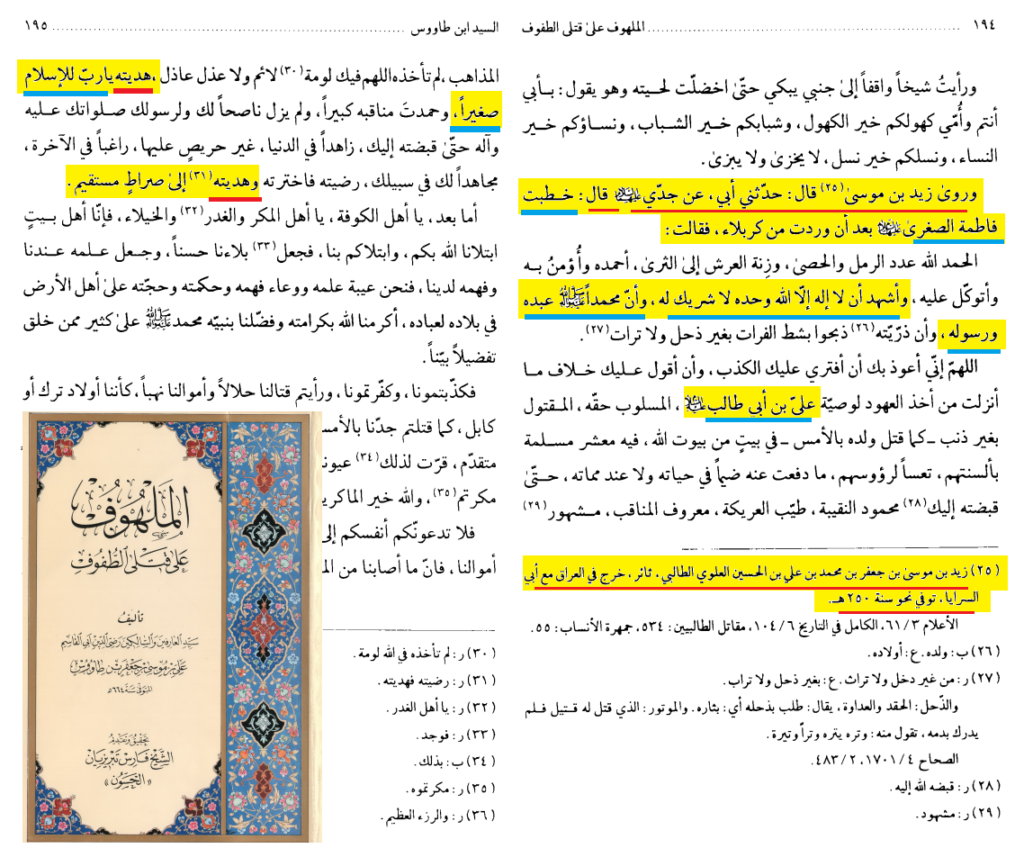 ١٩٤ ........ الملهوف علىٰ قتلى الطفوف
ورأيتُ شيخاً واقفاً إلىٰ جنبي يبكي حتّىٰ اخضلّت لحيته وهو يقول : بـأبي
أنتم وأُمّي كهولكم خير الكهول ، وشبابكم خـير الشـباب ، ونسـاؤكم خـير
النساء ، ونسلكم خير نسل ، لا يخزىٰ ولا يبزىٰ .
وروىٰ زيد بن موسىٰ (٢٥) قال : حدّثني أبي ، عن جدّي عليهالسلام قال : خـطبت
فاطمة الصغرىٰ عليهاالسلام بعد أن وردت من كربلاء ، فقالت :
الحمد لله عدد الرمل والحصىٰ ، وزِنة العرش إلىٰ الثرىٰ ، أحمده وأُؤمنُ بـه
وأتوكّل عليه ، وأشهد أن لا إله إلّا الله وحده لا شريك له ، وأنّ محمداً صلىاللهعليهوآله عبده
ورسوله ، وأن ذرّيّته (٢٦) ذبحوا بشط الفرات بغير ذحل ولا ترات (٢٧) .
اللهمّ إنّي أعوذ بك أن أفتري عليك الكذب ، وأن أقول عـليك خلاف مـا
أنزلت من أخذ العهود لوصيّة عليّ بن أبي طالب عليهالسلام ، المسلوب حقّه ، المـقتول
بغير ذنب ـ كما قتل ولده بالأمس ـ في بيتٍ من بيوت الله ، فيه معشر مسـلمة
بألسنتهم ، تعساً لرؤوسهم ، ما دفعت عنه ضيماً في حياته ولا عند مماته ، حـتّىٰ
قبضته إليك (٢٨) محمود النقيبة ، طيّب العريكة ، معروف المناقب ، مـشهور (٢٩)
(٢٥) زيد بن موسىٰ بن جعفر بن محمد بن علي بن الحسين العلوي الطالبي ، ثائر ، خرج في العراق مع أبي
السرايا ، توفي نحو سنة ٢٥٠ هـ .
الأعلام ٣ / ٦١ ، الكامل في التاريخ ٦ / ١٠٤ ، مقاتل الطالبيين : ٥٣٤ ، جمهرة الأنساب : ٥٥ .
(٢٦) ب : ولده . ع : أولاده .
(٢٧) ر : من غير دخل ولا تراث . ع : بغير ذحل ولا تراب .
والذّحل : الحقد والعداوة ، يقال : طلب بذحله أي : بثاره . والموتور : الذي قتل له قـتيل فـلم
يدرك بدمه ، تقول منه : وتره يتره وتراً وتيرة .
الصحاح ٤ / ١٧٠١ ، ٢ / ٤٨٣ .
(٢٨) ر : قبضه الله إليه .
(٢٩) ر : مشهود .
السيد ابن طاووس ........ ١٩٥
المذاهب ، لم تأخذه اللهم فيك لومة (٣٠) لائم ولا عذل عاذل ، هديته ياربّ للإسلام
صغيراً ، وحمدتَ مناقبه كبيراً ، ولم يزل ناصحاً لك ولرسولك صـلواتك عـليه
وآله حتّىٰ قبضته إليك ، زاهداً في الدنيا ، غير حريصٍ عليها ، راغباً في الآخرة ،
مجاهداً لك في سبيلك ، رضيته فاخترته وهديته (٣١) إلىٰ صراطٍ مستقيم .
أما بعد ، يا أهل الكوفة ، يا أهل المكر والغدر (٣٢) والخيلاء ، فإنّا أهل بـيتٍ
ابتلانا الله بكم ، وابتلاكم بنا ، فجعل (٣٣) بلاءنا حسناً ، وجـعل عـلمه عـندنا
وفهمه لدينا ، فنحن عيبة علمه ووعاء فهمه وحكمته وحجّته علىٰ أهل الأرض
في بلاده لعباده ، أكرمنا الله بكرامته وفضّلنا بنبيّه محمد صلىاللهعليهوآله علىٰ كثير ممن خلق
تفضيلاً بيّناً .
فكذّبتمونا ، وكفّرتمونا ، ورأيتم قتالنا حلالاً وأموالنا نهباً ، كأننا أولاد ترك أو
كابل ، كما قتلتم جدّنا بالأمس
متقدّم ، قرّت لذلك (٣٤) عيون
مكرتم (٣٥) ، والله خير الماكري
فلا تدعونّكم أنفسكم إلى
أموالنا ، فانّ ما أصابنا من الم
(٣٠) ر : لم تأخذه في الله لومة .
(٣١) ر : رضيته فهديته .
(٣٢) ر : يا أهل الغدر .
(٣٣) ر : فوجد .
(٣٤) ب : بذلك .
(٣٥) ر : مكرتموه .
(٣٦) ر : والرزء العظيم .
الملهوف
على قتلى الطفوف
تأليف
سيد العارفين والسالكين رضي الدين أبي القاسم
علي بن موسى بن جعفر بن طاووس
المتوفى سنة ٦٦٤ هـ
تحقيق وتقديم
الشيخ فارس تبريزيان
« الحسون »